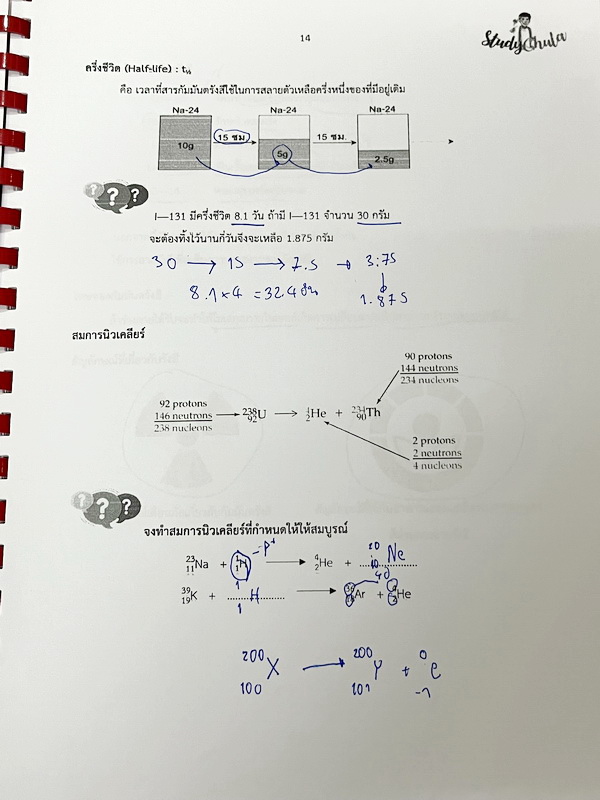 14
StudyChula
ครึ่งชีวิต (Half-life) : t½
คือ เวลาที่สารกัมมันตรังสีใช้ในการสลายตัวเหลือครึ่งหนึ่งของที่มีอยู่เดิม
Na-24 Na-24 Na-24
10g 15 ซม. 5g 15 ซม. 2.5g
???
I—131 มีครึ่งชีวิต 8.1 วัน ถ้ามี I—131 จำนวน 30 กรัม
จะต้องทิ้งไว้นานกี่วันจึงจะเหลือ 1.875 กรัม
30 → 15 → 7.5 → 3.75
8.1 × 4 = 32.4 วัน 1.875
สมการนิวเคลียร์
90 protons
144 neutrons
234 nucleons
92 protons
146 neutrons
238 nucleons
²³⁸₉₂U → ⁴₂He + ²³⁴₉₀Th
2 protons
2 neutrons
4 nucleons
???
จงทำสมการนิวเคลียร์ที่กำหนดให้ให้สมบูรณ์
²³₁₁Na + ¹₁H – p⁺ → ⁴₂He + ²⁰₁₀Ne
³⁹₁₉K + ¹₁H → ³⁶₁₈Ar + ⁴₂He
²⁰⁰₁₀₀X → ²⁰⁰₁₀₁Y + ⁰₋₁e